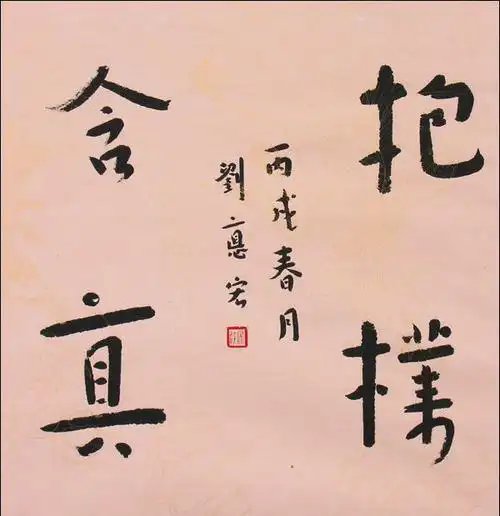 抱樸
含真
丙戌春月
劉惪宏